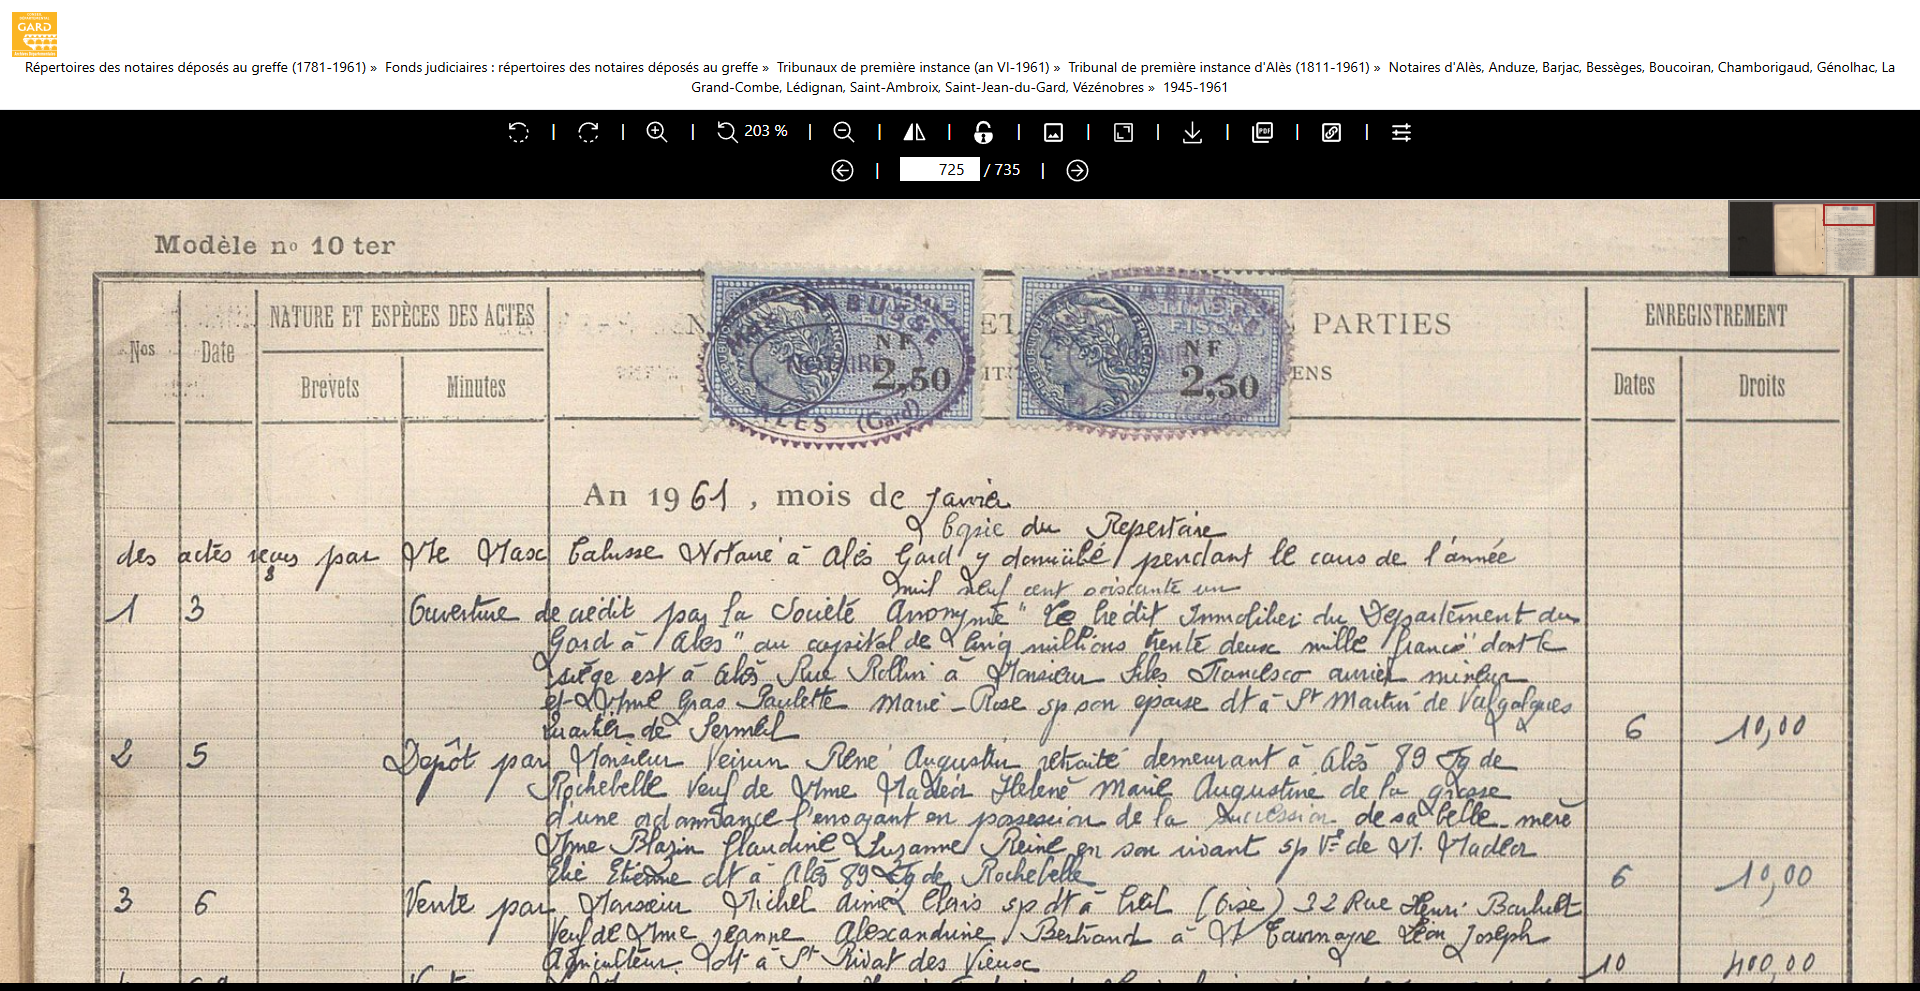 GARD
Répertoires des notaires déposés au greffe (1781-1961) » Fonds judiciaires : répertoires des notaires déposés au greffe » Tribunaux de première instance (an VI-1961) » Tribunal de première instance d'Alès (1811-1961) » Notaires d'Alès, Anduze, Barjac, Bessèges, Boucoiran, Chamborigaud, Génolhac, La
Grand-Combe, Lédignan, Saint-Ambroix, Saint-Jean-du-Gard, Vézénobres » 1945-1961
203 %
PDF
725 / 735
Modèle nº 10 ter
Nos Date NATURE ET ESPÈCES DES ACTES PARTIES ENREGISTREMENT
Brevets Minutes Dates Droits
NOTAIRE NF 2,50 ALÈS (Gard)
NF 2,50
An 1961, mois de Janvier
Copie du Repertoire
des actes reçus par Me Masc Notaire à Alès Gard y domicilié pendant le cours de l'année
mil neuf cent soixante un
1 3 Ouverture de crédit par la Société Anonyme "Le Crédit Immobilier du Département du
Gard à Alès" au capital de Cinq millions trente deux mille francs dont le
siège est à Alès Rue Rollin à Monsieur Francesco ouvrier mineur
et Mme Gras Paulette Marie-Rose sp son épouse dt à St Martin de Valgalgues
quartier de 6 10,00
2 5 Depôt par Monsieur Veirun René Augustin retraité demeurant à Alès 89 Fg de
Rochebelle Veuf de Mme Hélène Marie Augustine de la grosse
d'une ordonnance l'envoyant en possession de la succession de sa belle-mère
Mme Blazin Claudine Suzanne Reine en son vivant sp Ve de M.
Elie Etienne dt à Alès 89 Fg de Rochebelle 6 10,00
3 6 Vente par Monsieur Michel Aimé Clovis sp dt à Creil (Oise) 32 Rue Henri
Veuf de Mme Jeanne Alexandrine Bertrand à M Léon Joseph
Agriculteur dt à St Privat des Vieux 10 400,00